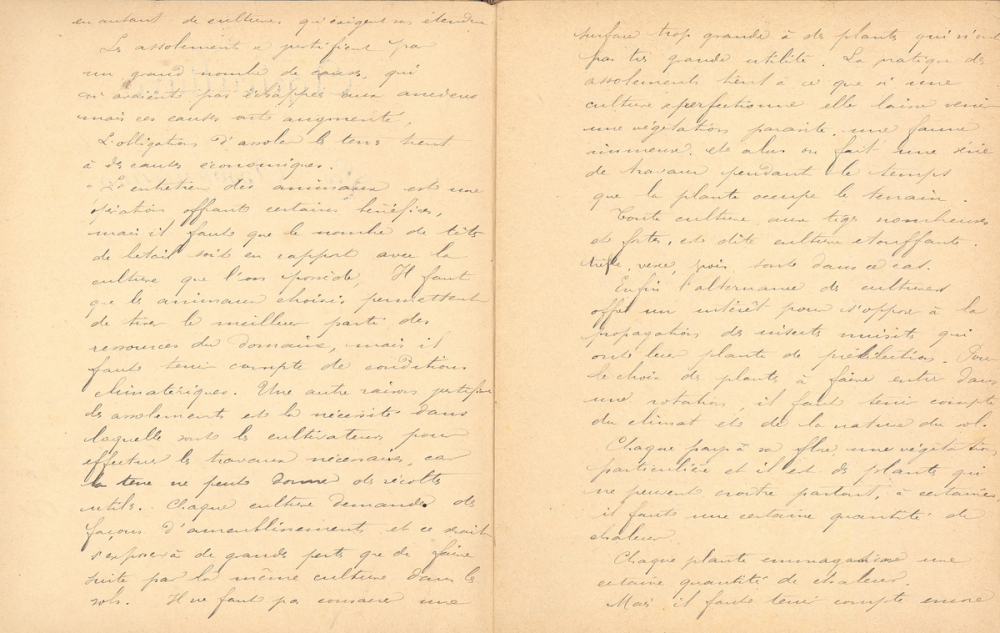 en autant de cultures qu'exigent son étendue
Les assolements se justifient par
un grand nombre de causes, qui
n'avaient pas échappé aux anciens
mais ces causes ont augmenté,
L'obligation d'assoler les terres tient
à des causes économiques.
L'entretien des animaux est une
opération offrant certains bénéfices,
mais il faut que le nombre de têtes
de bétail soit en rapport avec la
culture que l'on possède, Il faut
que les animaux choisis permettent
de tirer le meilleur parti des
ressources du domaine, mais il
faut tenir compte de conditions
climatériques. Une autre raison justifiant
les assolements est la nécessité dans
laquelle sont les cultivateurs pour
effectuer les travaux nécessaires, car
la terre ne peut donner des récoltes
utiles. Chaque culture demande des
façons d'ameublissement, et ce serait
s'exposer à de grandes pertes que de faire
suite par la même culture dans les
sols. Il ne faut pas consacrer une
surface trop grande à des plants qui n'ont
pas très grande utilité. La pratique des
assolements tient à ce que si une
culture se perfectionne elle laisse venir
une végétation parasite, une faune
et alors on fait une série
de travaux pendant le temps
que la plante occupe le terrain.
Toute culture aux tiges nombreuses
et fortes, est dite culture étouffante.
trèfle, vesce, pois sont dans ce cas.
Enfin l'alternance des cultures
offre un intérêt pour s'opposer à la
propagation des insectes nuisibles qui
ont leur plante de prédilection. Pour
le choix des plants à faire entrer dans
une rotation, il faut tenir compte
du climat et de la nature du sol.
Chaque pays à sa flore, une végétation
particulière et il est des plants qui
ne peuvent croître partout, à certaines
il faut une certaine quantité de
chaleur.
Chaque plante emmagasine une
certaine quantité de chaleur.
Mais il faut tenir compte encore